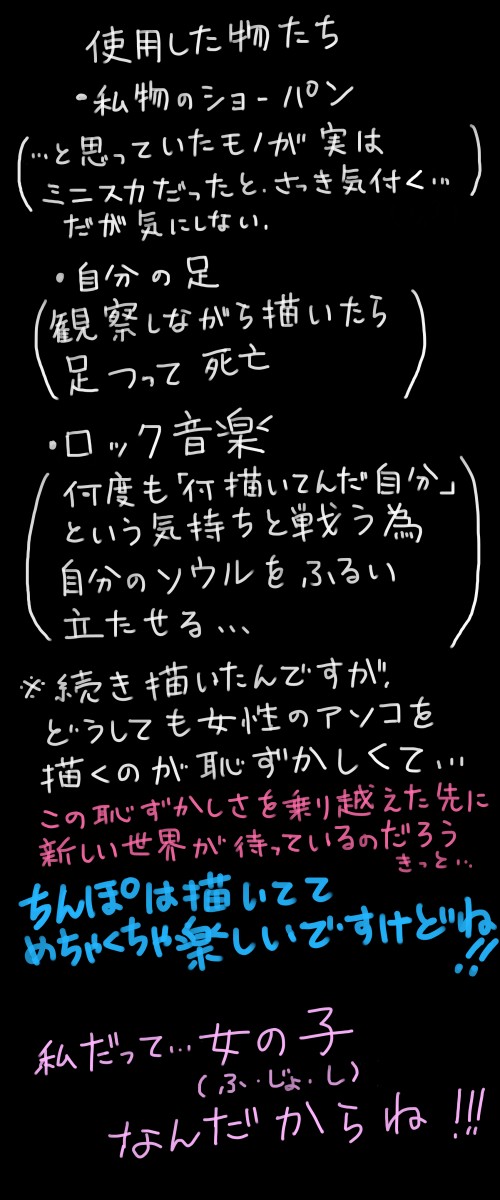 使用した物たち
・私物のショーパン
(…と思っていたモノが実は
ミニスカだったと、さっき気付く…)
だが気にしない。
・自分の足
(観察しながら描いたら
足つって死亡)
・ロック音楽
(何度も「何描いてんだ自分」
という気持ちと戦う為
自分のソウルをふるい
立たせる…)
※続き描いたんですが、
どうしても女性のアソコを
描くのが恥ずかしくて…
この恥ずかしさを乗り越えた先に
新しい世界が待っているのだろう
きっと…
ちんぽは描いてて
めちゃくちゃ楽しいですけどね
!!
私だって…女の子
(ふ・じょ・し)
なんだからね!!!